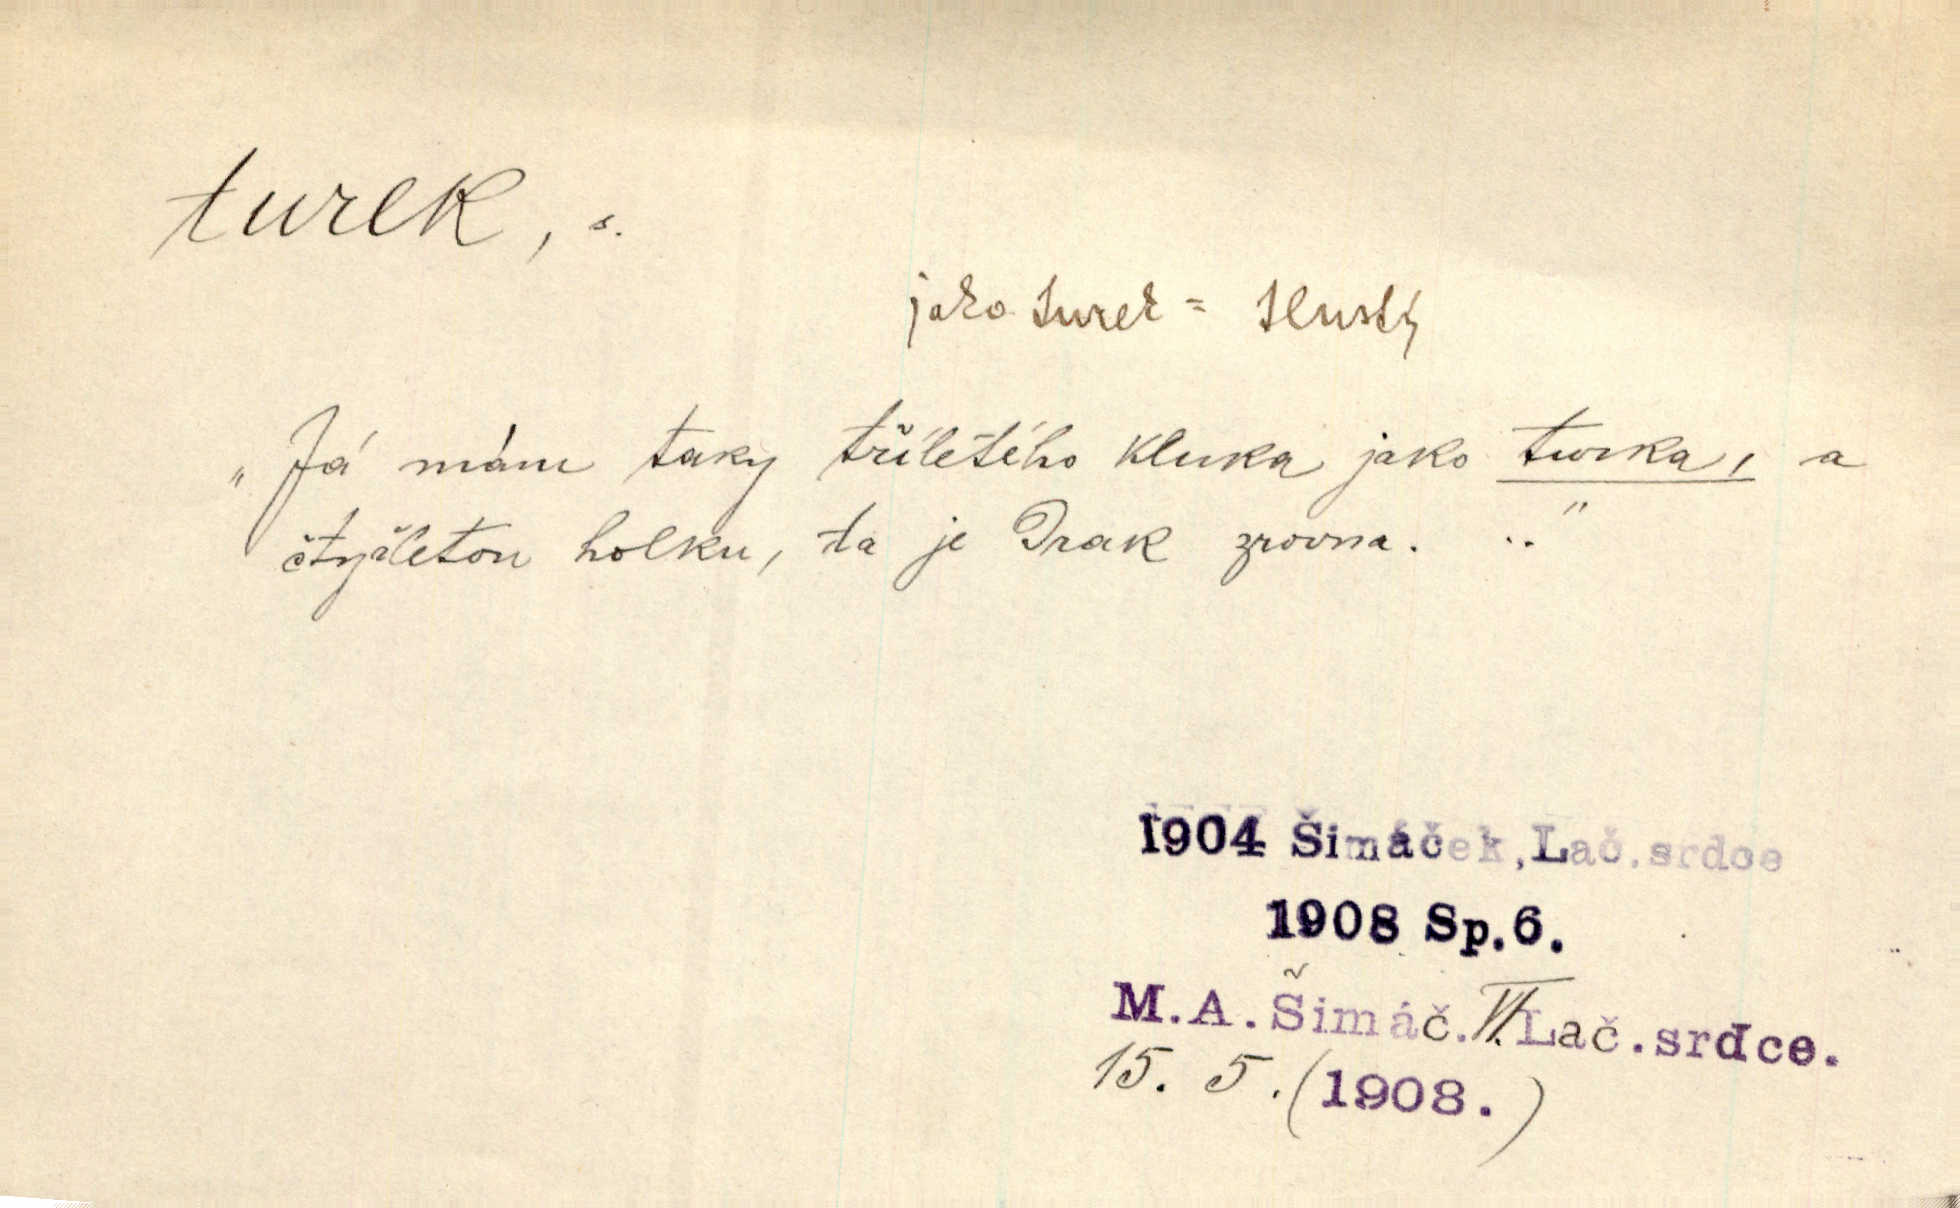 turek, s.
jako turek = tlustý
„Já mám taky tříletého kluka jako turka, a
čtyřletou holku, ta je Drak zrovna. .."
1904 Šimáček, Lač. srdce
1908 Sp.6.
M.A.Šimáč. VI. Lač.srdce.
15. 5. (1908.)